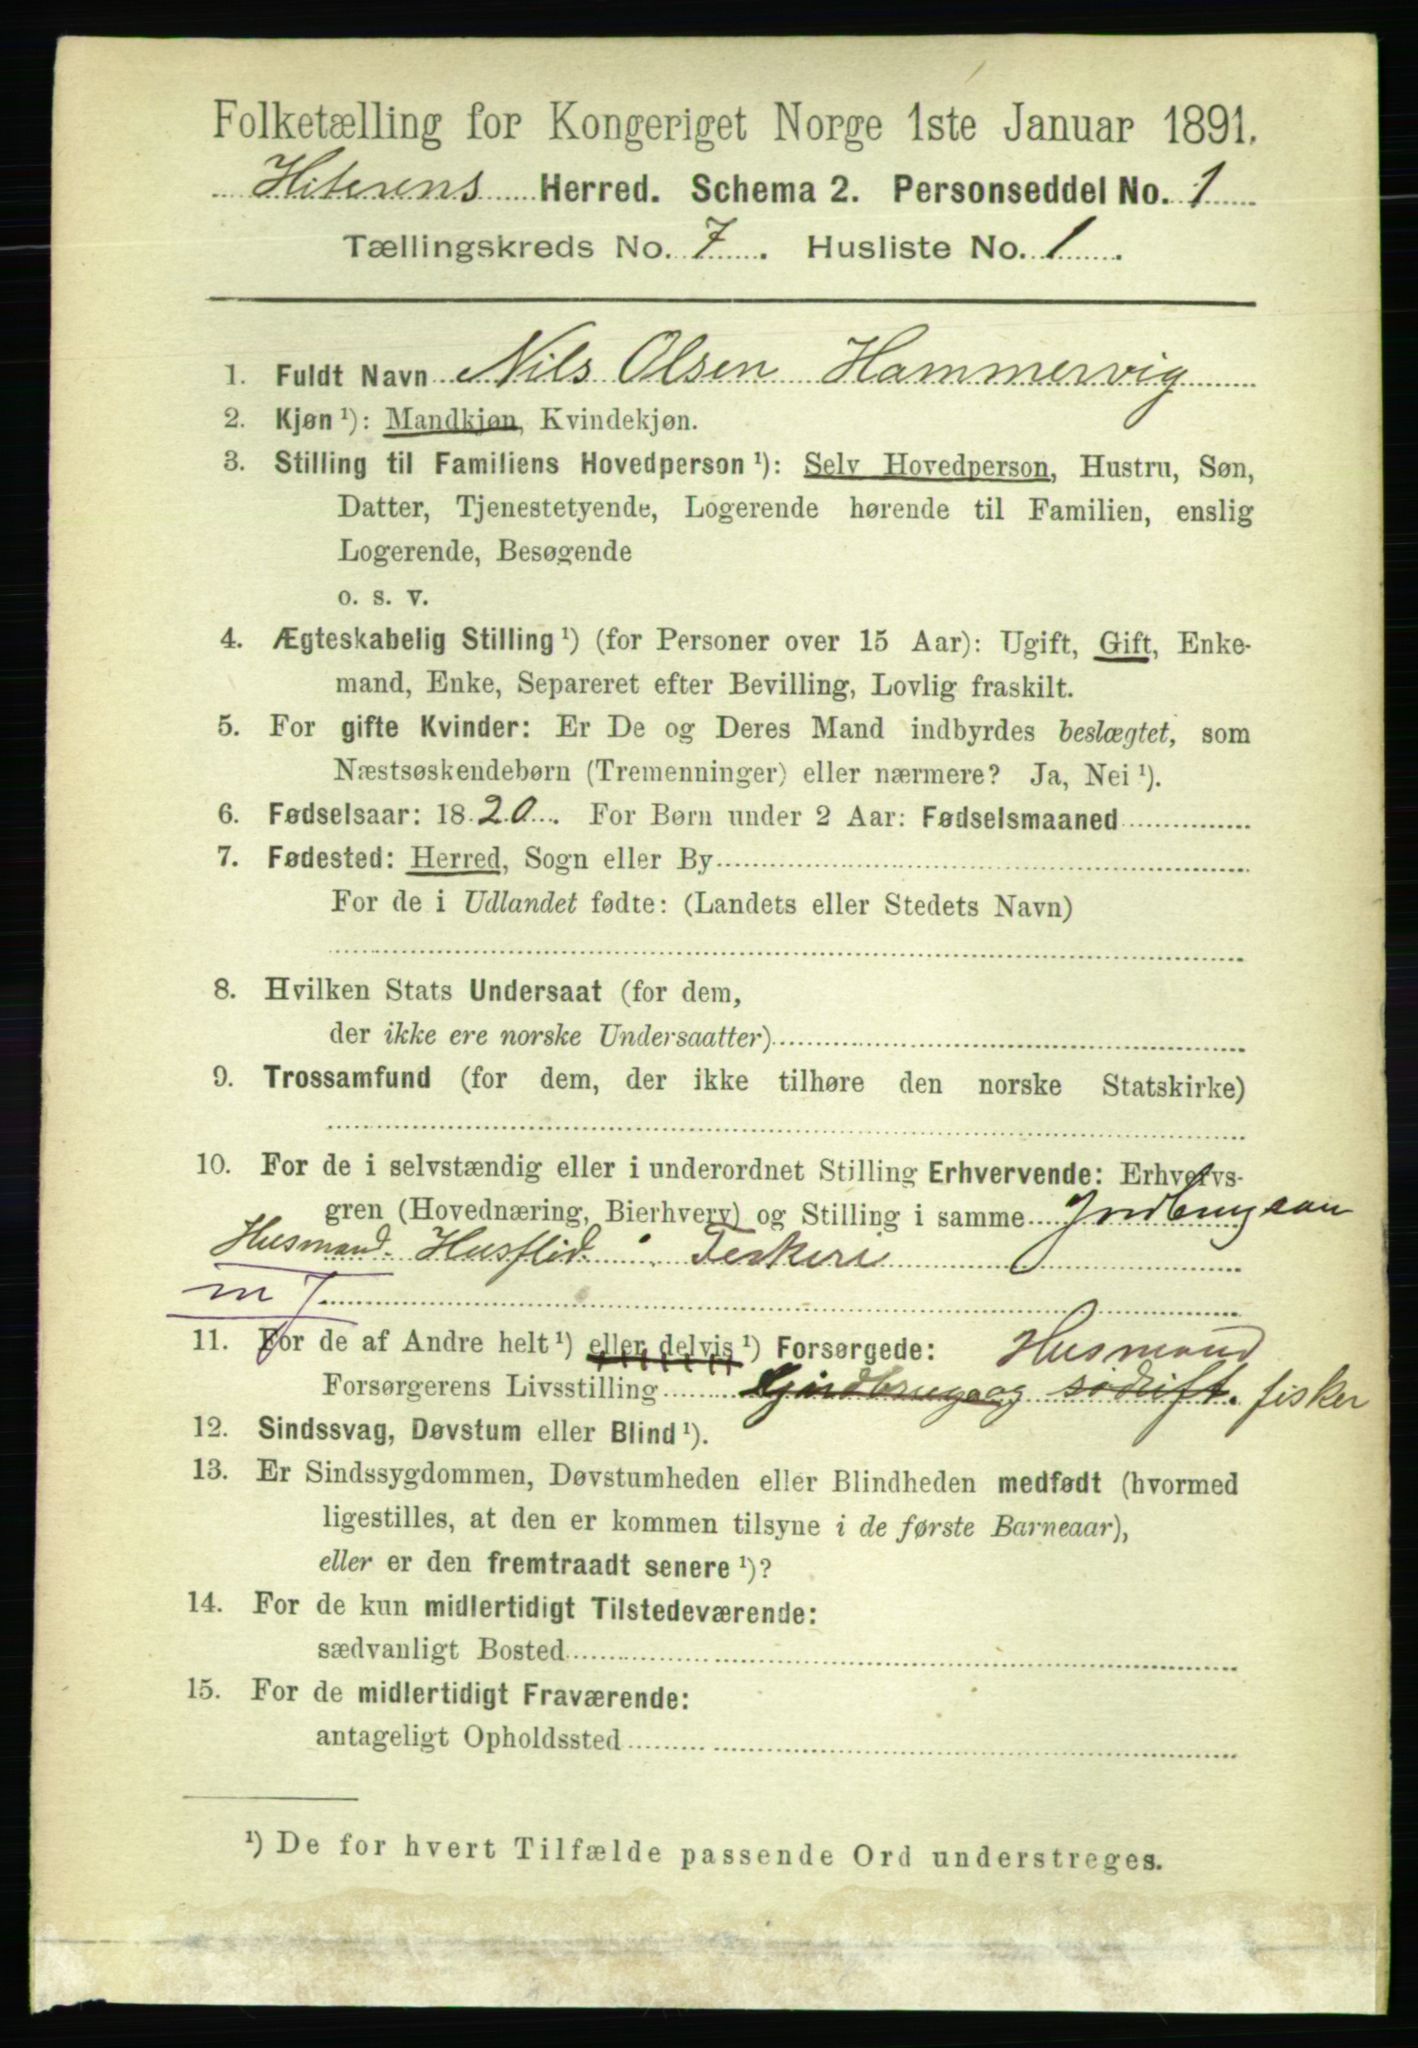 Folketælling for Kongeriget Norge 1ste Januar 1891.
Hiterens Herred. Schema 2. Personseddel No. 1
Tællingskreds No. 7. Husliste No. 1.
1. Fuldt Navn Nils Olsen Hammervig
2. Kjøn ¹): Mandkjøn, Kvindekjøn.
3. Stilling til Familiens Hovedperson ¹): Selv Hovedperson, Hustru, Søn,
Datter, Tjenestetyende, Logerende hørende til Familien, enslig
Logerende, Besøgende
o. s. v.
4. Ægteskabelig Stilling ¹) (for Personer over 15 Aar): Ugift, Gift, Enke-
mand, Enke, Separeret efter Bevilling, Lovlig fraskilt.
5. For gifte Kvinder: Er De og Deres Mand indbyrdes beslægtet, som
Næstsøskendebørn (Tremenninger) eller nærmere? Ja, Nei ¹).
6. Fødselsaar: 1820. For Børn under 2 Aar: Fødselsmaaned
7. Fødested: Herred, Sogn eller By
For de i Udlandet fødte: (Landets eller Stedets Navn)
8. Hvilken Stats Undersaat (for dem,
der ikke ere norske Undersaatter)
9. Trossamfund (for dem, der ikke tilhøre den norske Statskirke)
10. For de i selvstændig eller i underordnet Stilling Erhvervende: Erhvervs-
gren (Hovednæring, Bierhverv) og Stilling i samme
Husmand. Husflid
11. For de af Andre helt ¹) eller delvis ¹) Forsørgede: Husmand
Forsørgerens Livsstilling fisker
12. Sindssvag, Døvstum eller Blind ¹).
13. Er Sindssygdommen, Døvstumheden eller Blindheden medfødt (hvormed
ligestilles, at den er kommen tilsyne i de første Barneaar),
eller er den fremtraadt senere ¹)?
14. For de kun midlertidigt Tilstedeværende:
sædvanligt Bosted
15. For de midlertidigt Fraværende:
antageligt Opholdssted
¹) De for hvert Tilfælde passende Ord understreges.